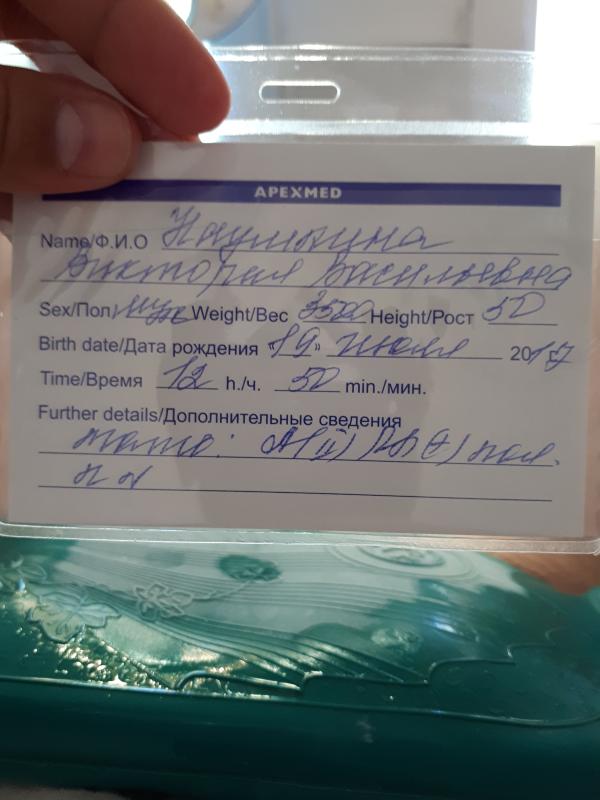 APEXMED
Name/Ф.И.О Наумкина
Виктория Васильевна
Sex/Пол муж Weight/Вес 3500 Height/Рост 50
Birth date/Дата рождения «19» июля 2017
Time/Время 12 h./ч. 50 min./мин.
Further details/Дополнительные сведения
A(II) Rh(+) пол.